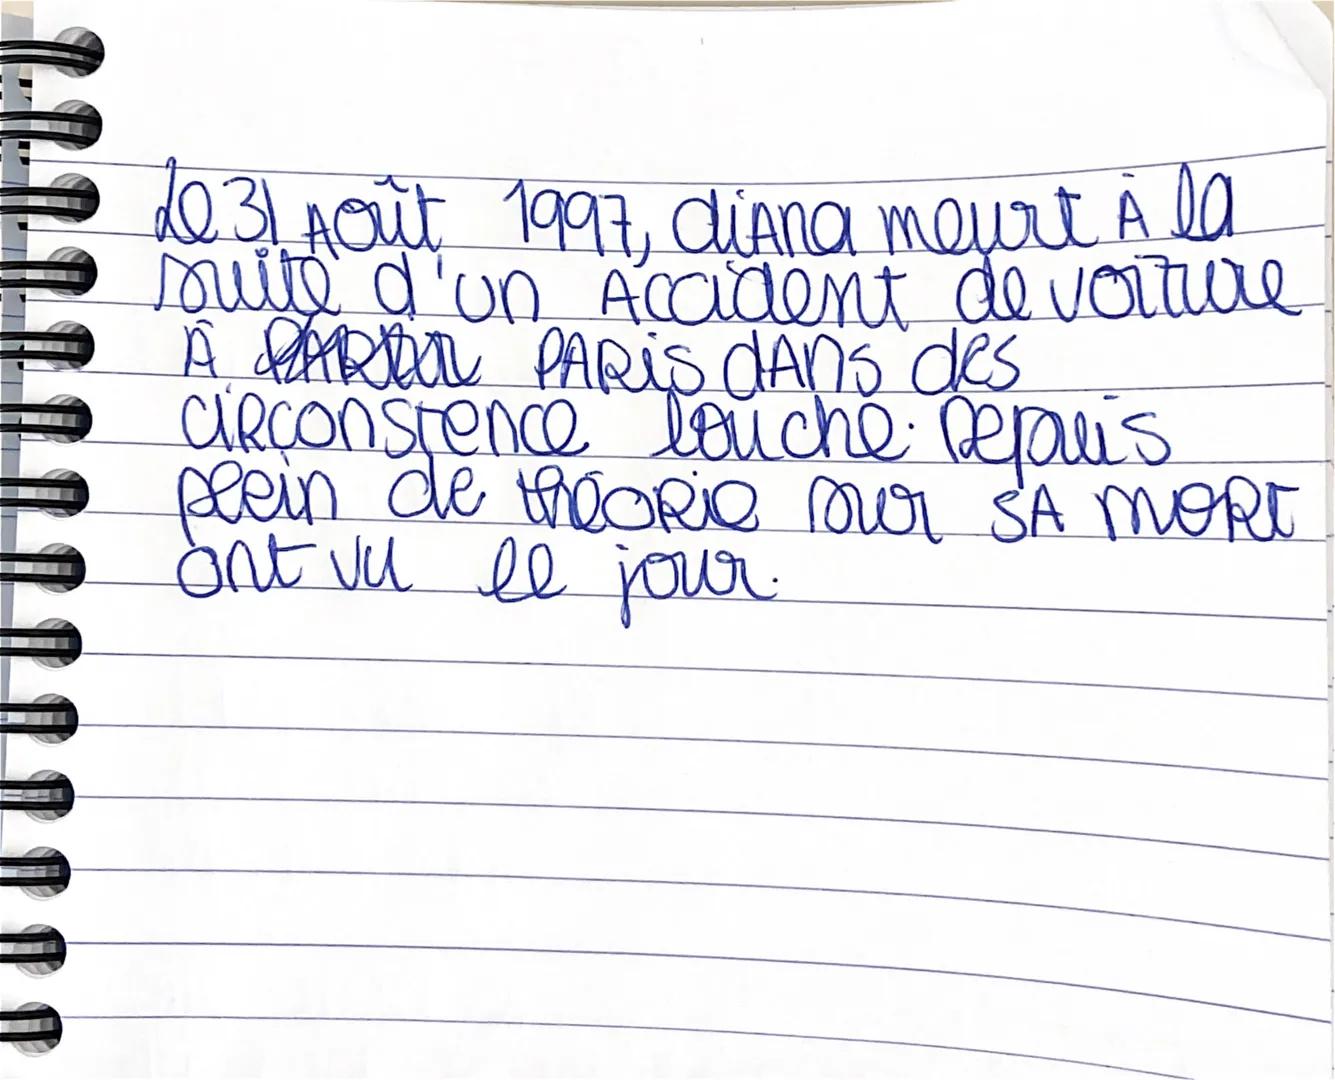 Le 31 Août 1997, diana meurt À la
suite d'un Accident de voiture
À PARIS dAns des
circonstence louche. Depuis
plein de théorie sur SA MORT
ont vu le jour.